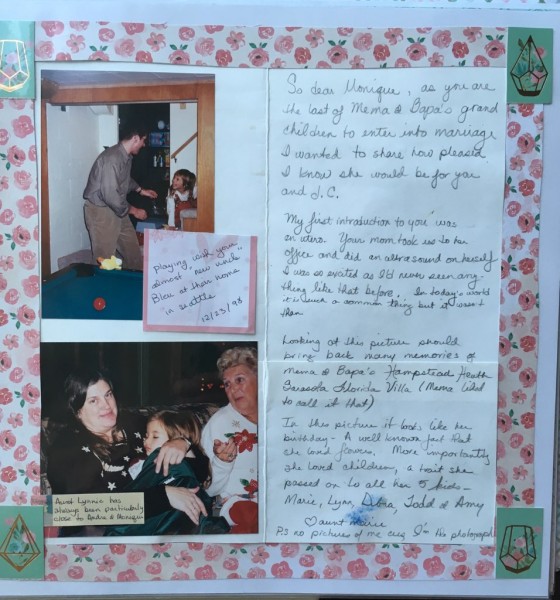 playing with your
almost new uncle
Blew at their home
in seattle
12/23/98
Aunt Lynnie has
always been particularly
close to Andie & Monique
So dear Monique, as you are
the last of Mema & Bapa's grand
children to enter into marriage
I wanted to share how pleased
I know she would be for you
and J.C.
My first introduction to you was
en utero. Your mom took us to her
office and did an ultrasound on herself
I was so excited as I'd never seen any-
thing like that before. In today's world
it is such a common thing but it wasn't
then
Looking at this picture should
bring back many memories of
Mema & Bapa's Hampstead Heath
Sarasota Florida Villa (Mema liked
to call it that)
In this picture it looks like her
birthday - A well known fact that
she loved flowers. More importantly
she loved children, a trait she
passed on to all her 5 kids -
Marie, Lynn, Debra, Todd & Amy
♡ aunt Marie
PS no pictures of me cuz I'm the photographer